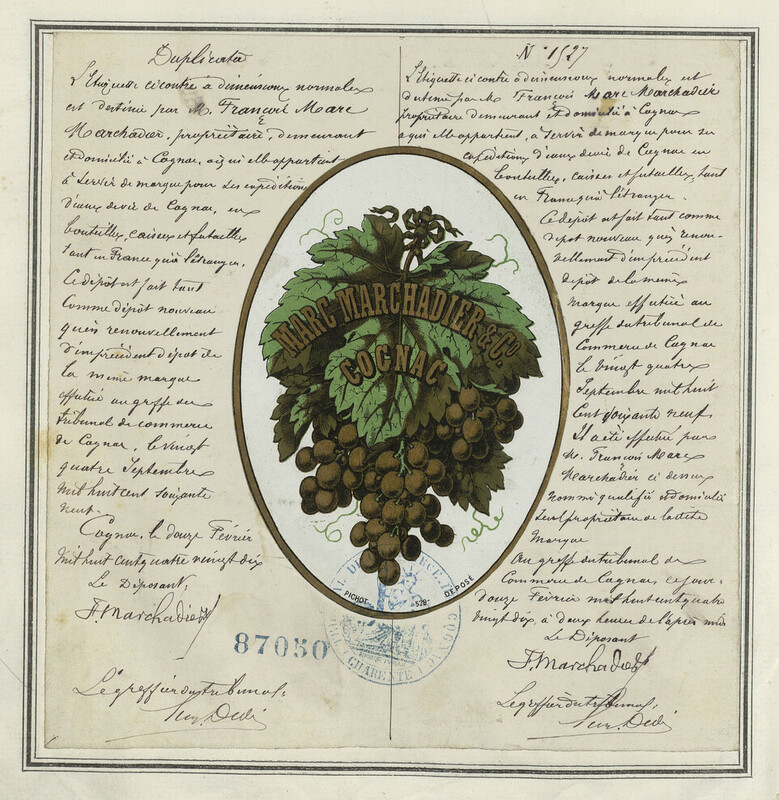 Duplicata
L'Etiquette ci contre a dimensions normales
est destinée par M. François Marc
Marchadier, propriétaire, demeurant
et domicilié à Cognac, à qui elle appartient
à servir de marque pour ses expéditions
d'eaux de vie de Cognac, en
bouteilles, caisses et futailles
tant en France qu'à l'étranger.
Ce dépôt est fait tant
comme dépôt nouveau
qu'en renouvellement
d'un précédent dépôt de
la même marque
effectué au greffe du
tribunal de commerce
de Cognac, le vingt
quatre Septembre
mil huit cent soixante
neuf.
Cognac, le douze Février
mil huit cent quatre vingt dix
Le Déposant,
F. Marchadier
Le greffier du tribunal,
N° 1527
L'étiquette ci contre à dimensions normales est
destinée par M. François Marc Marchadier
propriétaire demeurant et domicilié à Cognac
à qui elle appartient, à servir de marque pour ses
expéditions d'eaux de vie de Cognac en
bouteilles, caisses et futailles, tant
en France qu'à l'étranger.
Ce dépôt est fait tant comme
dépot nouveau qu'en renou-
vellement d'un précédent
dépôt de la même
marque effectué au
greffe du tribunal de
Commerce de Cognac
le vingt quatre
Septembre mil huit
cent soixante neuf.
Il a été effectué par
M. François Marc
Marchadier ci dessus
nommé qualifié et domicilié
seul propriétaire de la dite
marque
Au greffe du tribunal de
Commerce de Cognac, ce jour
douze Février mil huit cent quatre
vingt dix, à deux heures de l'après midi
Le Déposant
F. Marchadier
Le greffier du tribunal,
MARC MARCHADIER & Co
COGNAC
PICHOT 529 DÉPOSÉ
87050